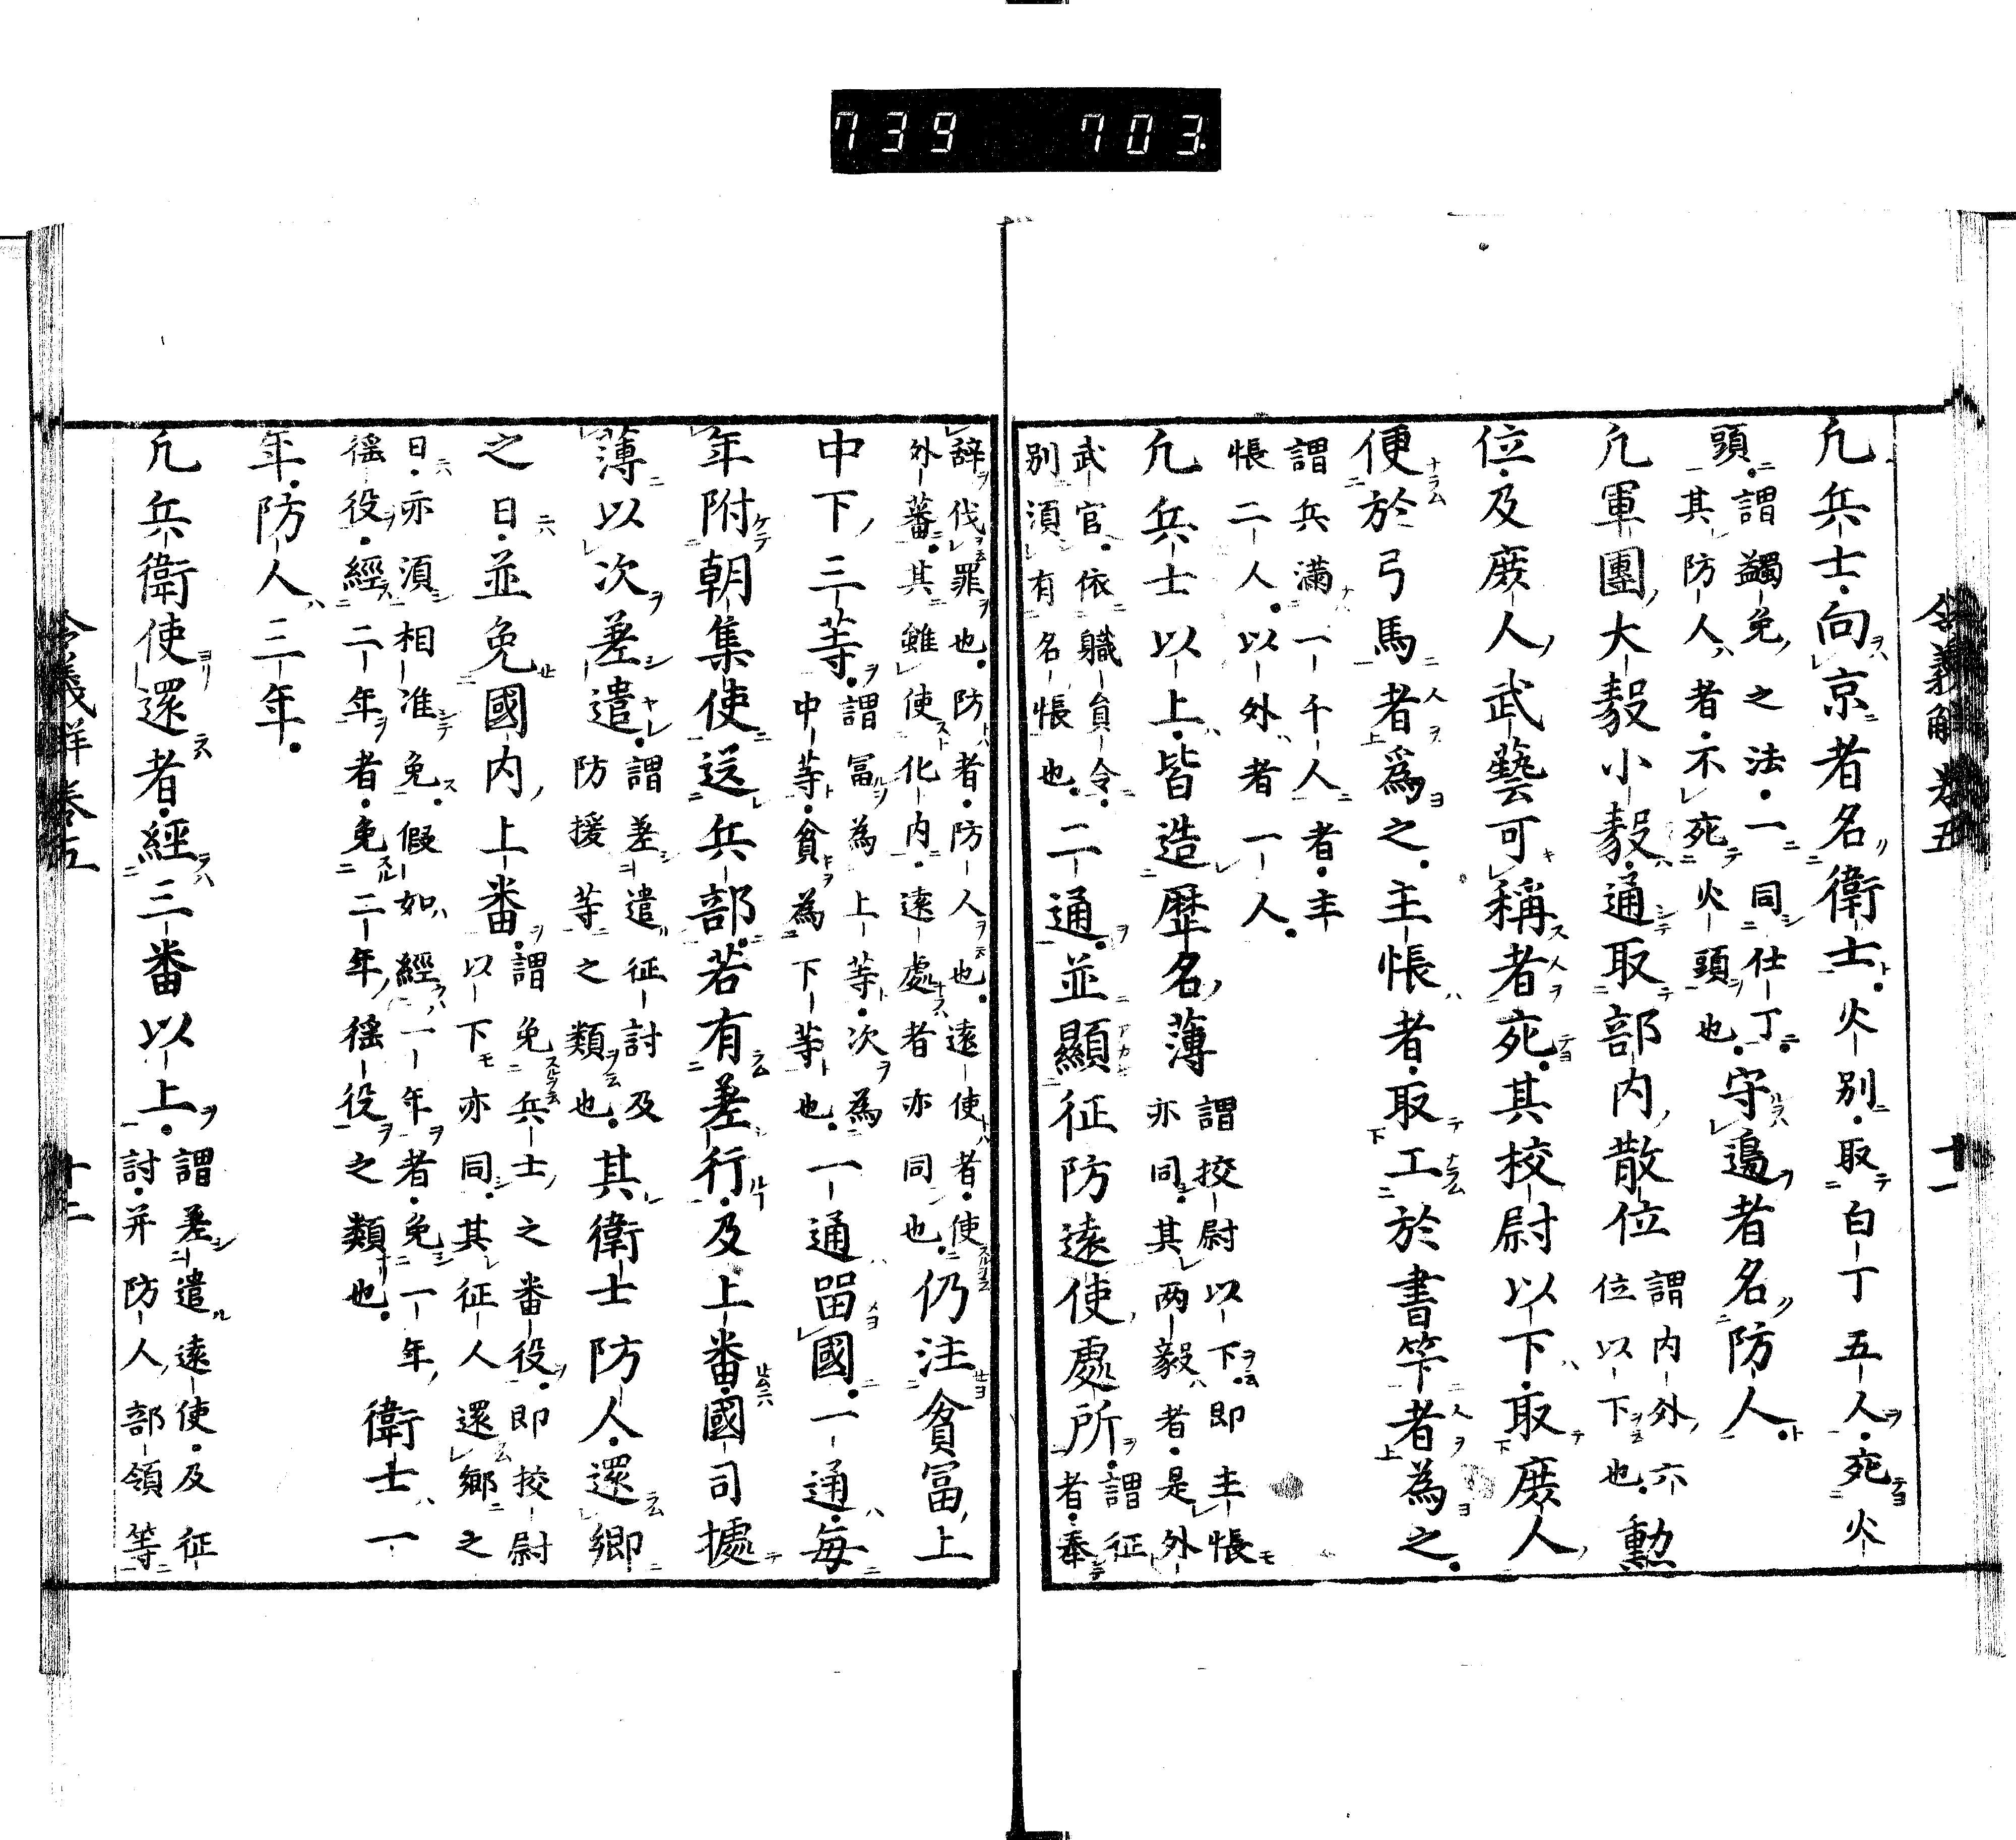 739 703
令義解卷五 十一
凢兵士向京者名衛士火別取白丁五人死火
頭謂蠲免之法一同仕丁其防人者不死火頭也守邊者名防人
凢軍團大毅小毅通取部内散位謂内外六位以下也勲
位及庻人武藝可稱者死其校尉以下取庻人
便於弓馬者爲之主帳者取工於書竿者為之
謂兵滿一千人者主帳二人以外者一人
凢兵士以上皆造歴名薄謂挍尉以下即主帳亦同其两毅者是外
武官依軄貟令別湏有名帳也二通並顯征防遠使處所謂征者奉
辞伐罪也防者防人也遠使者使外蕃其雖使化内遠處者亦同也仍注貧冨上
中下三等謂冨為上等次為中等貧為下等也一通畱國一通毎
年附朝集使送兵部若有差行及上番國司㨿
薄以次差遣謂差遣征討及防援等之類也其衛士防人還郷
之日並免國内上番謂免兵士之番役即挍尉以下亦同其征人還郷之
日亦湏相准免假如經一年者免一年徭役經二年者免二年徭役之類也衛士一
年防人三年
凢兵衛使還者經三番以上謂差遣遠使及征討并防人部領等
令義解卷五 十二